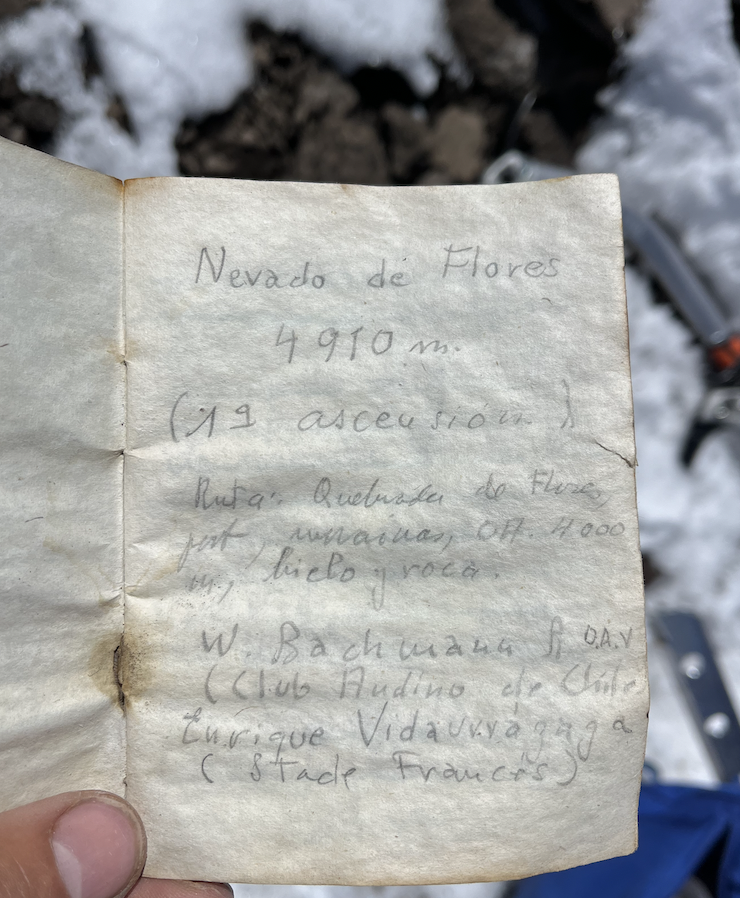 Nevado de Flores
4910 m.
(1ª ascensión)
Ruta: Quebrada de Flores,
morainas, 4000
m, hielo y roca.
W. Bachmann D.A.V
(Club Andino de Chile
Enrique Vidaurrázaga
(Stade Francés)